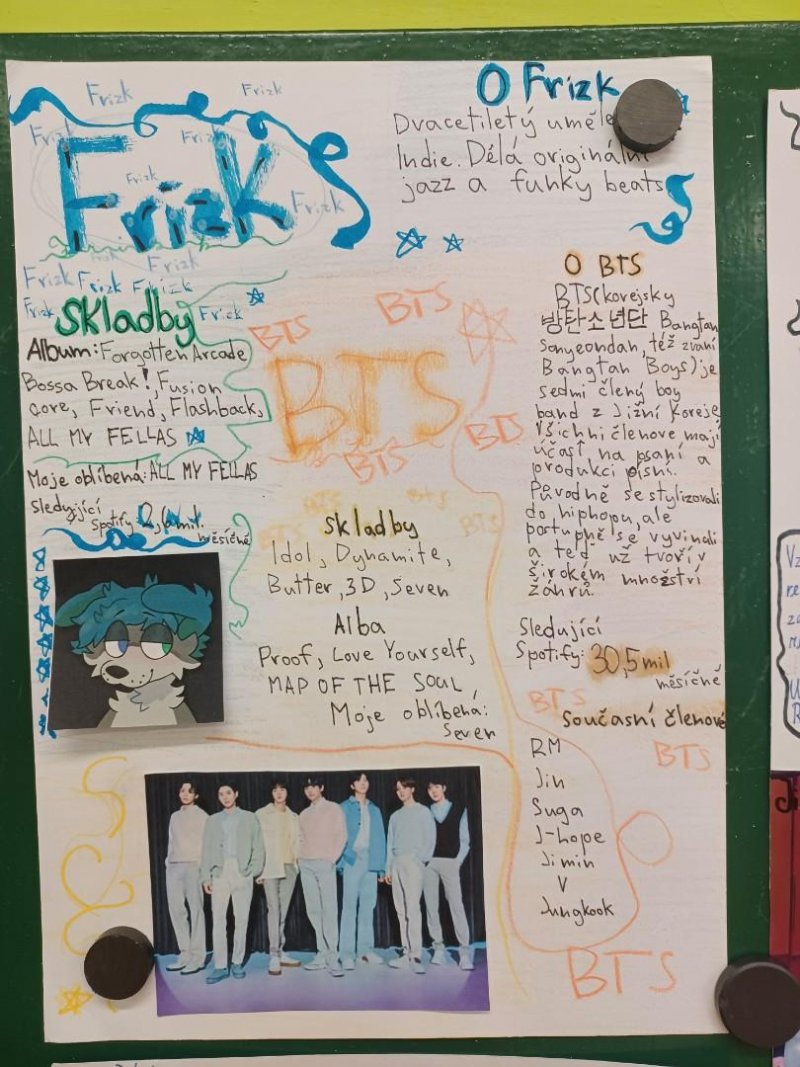 Frizk
Frizk
Frizk
Frizk
Frizk
Frizk
Frizk
Frizk
Frizk Frizk Frizk
Frizk
Frizk
O Frizk
Dvacetiletý uměle
Indie. Dělá originální
jazz a funky beats
Skladby
Album: Forgotten Arcade
Bossa Break!, Fusion
core, Friend, Flashback,
ALL MY FELLAS
Moje oblíbená: ALL MY FELLAS
Sledující
Spotify 2,6 mil.
měsíčně
BTS
BTS
BTS
BTS
BTS
BTS
BTS
BTS
BTS
Skladby
Idol, Dynamite,
Butter, 3D, Seven
Alba
Proof, Love Yourself,
MAP OF THE SOUL
Moje oblíbená:
Seven
O BTS
BTS (korejsky
방탄소년단 Bangtan
Sonyeondan, též zvaní
Bangtan Boys) je
sedmi člený boy
band z Jižní Koreje
Všichni členove mají
účast, na psaní a
produkci písní.
Původně se stylizovali
do hiphopu, ale
portupně se vyvinuli
a teď už tvoří v
širokém množství
žáhrů.
Sledující
Spotify: 30,5 mil
měsíčně
BTS
Současní členové
BTS
RM
Jin
Suga
J-hope
Jimin
V
Jungkook
BTS